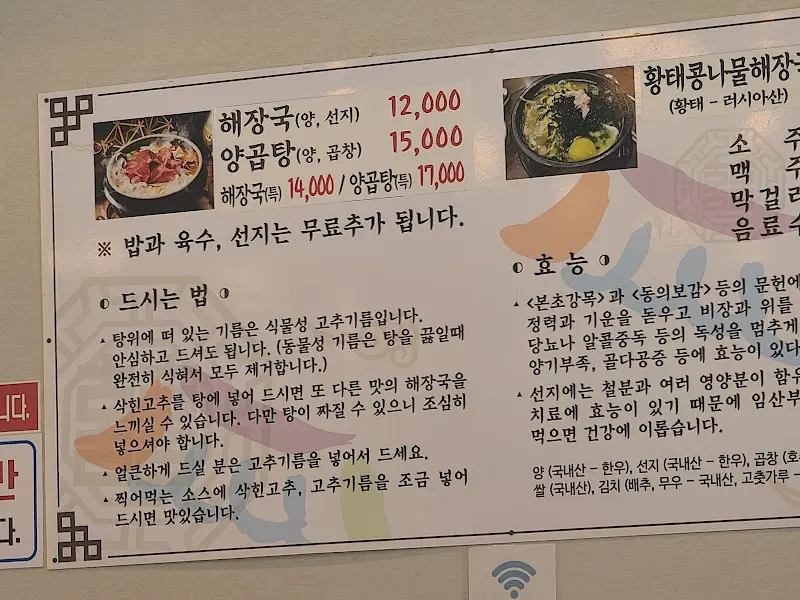 해장국(양, 선지) 12,000
양곱탕(양, 곱창) 15,000
해장국(특) 14,000 / 양곱탕(특) 17,000
※ 밥과 육수, 선지는 무료추가 됩니다.
드시는 법
▲ 탕위에 떠 있는 기름은 식물성 고추기름입니다.
안심하고 드셔도 됩니다. (동물성 기름은 탕을 끓일때
완전히 식혀서 모두 제거합니다.)
▲ 삭힌고추를 탕에 넣어 드시면 또 다른 맛의 해장국을
느끼실 수 있습니다. 다만 탕이 짜질 수 있으니 조심히
넣으셔야 합니다.
▲ 얼큰하게 드실 분은 고추기름을 넣어서 드세요.
▲ 찍어먹는 소스에 삭힌고추, 고추기름을 조금 넣어
드시면 맛있습니다.
황태콩나물해장국
(황태 - 러시아산)
소 주
맥 주
막걸리
음료수
효능
▲ <본초강목>과 <동의보감> 등의 문헌에
정력과 기운을 돋우고 비장과 위를
당뇨나 알콜중독 등의 독성을 멈추게
양기부족, 골다공증 등에 효능이 있다
▲ 선지에는 철분과 여러 영양분이 함유
치료에 효능이 있기 때문에 임산부
먹으면 건강에 이롭습니다.
양 (국내산 - 한우), 선지 (국내산 - 한우), 곱창 (호
쌀 (국내산), 김치 (배추, 무우 - 국내산, 고춧가루 -
니다.
만
다.